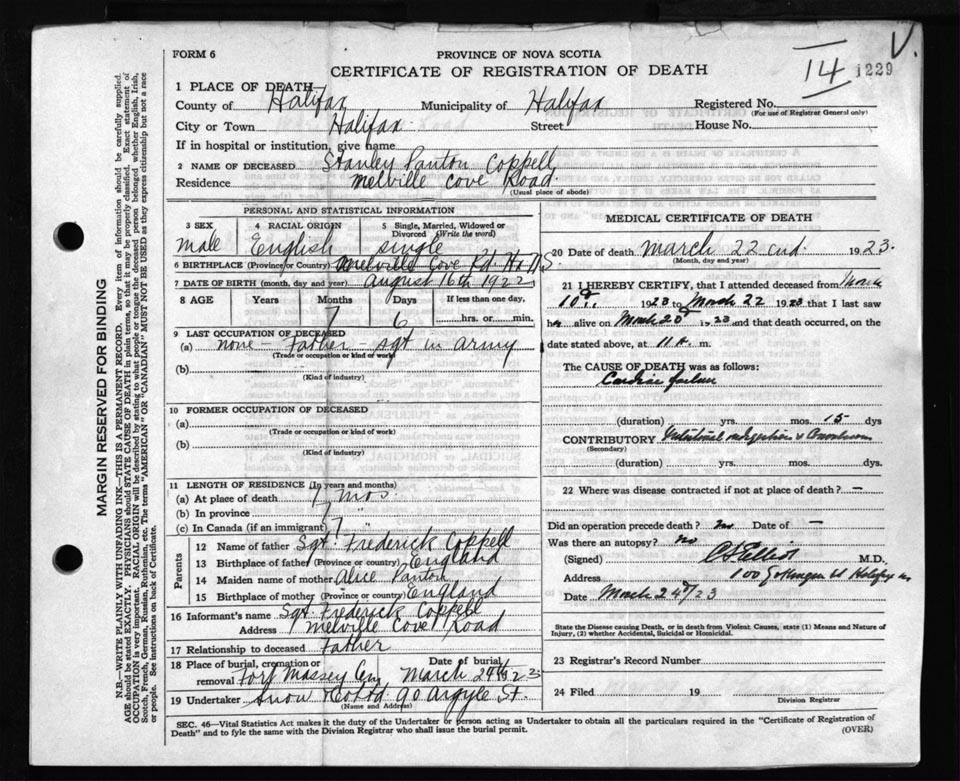 FORM 6
PROVINCE OF NOVA SCOTIA
CERTIFICATE OF REGISTRATION OF DEATH
14
V.
1229
1 PLACE OF DEATH
County of Halifax Municipality of Halifax Registered No.
(For use of Registrar General only)
City or Town Halifax Street House No.
If in hospital or institution, give name
2 NAME OF DECEASED Stanley Panton Coppell
Residence Melville Cove Road
(Usual place of abode)
PERSONAL AND STATISTICAL INFORMATION
3 SEX 4 RACIAL ORIGIN 5 Single, Married, Widowed or Divorced (Write the word)
Male English single
6 BIRTHPLACE (Province or Country) Melville Cove Rd. Hx N.S
7 DATE OF BIRTH (month, day and year) August 16th 1922
8 AGE Years Months Days If less than one day,
7 6 hrs. or min.
9 LAST OCCUPATION OF DECEASED
(a) none - Father - sgt in army
(Trade or occupation or kind of work)
(b)
(Kind of industry)
10 FORMER OCCUPATION OF DECEASED
(a)
(Trade or occupation or kind of work)
(b)
(Kind of industry)
11 LENGTH OF RESIDENCE (In years and months)
(a) At place of death 7 mos
(b) In province 7 "
(c) In Canada (if an immigrant) 7 "
Parents
12 Name of father Sgt. Frederick Coppell
13 Birthplace of father (Province or country) England
14 Maiden name of mother Alice Panton
15 Birthplace of mother (Province or country) England
16 Informant's name Sgt. Frederick Coppell
Address Melville Cove Road
17 Relationship to deceased Father
18 Place of burial, cremation or removal Fort Massey Cem Date of burial March 24th 1923
19 Undertaker Snow & Co Ltd 90 Argyle St.
(Name and Address)
MEDICAL CERTIFICATE OF DEATH
20 Date of death March 22 nd 1923.
(Month, day and year)
21 I HEREBY CERTIFY, that I attended deceased from March
10th. 1923 to March 22 1923 that I last saw
h alive on March 20th 1923 and that death occurred, on the
date stated above, at 11 A. m.
The CAUSE OF DEATH was as follows:
Cardiac failure
(duration) yrs. mos. 15 dys
CONTRIBUTORY Intestinal indigestion &
(Secondary)
(duration) yrs. mos. dys.
22 Where was disease contracted if not at place of death? —
Did an operation precede death? no Date of —
Was there an autopsy? no
(Signed) M.D.
Address 100 Gottingen St Halifax NS
Date March 24th/23
State the Disease causing Death, or in death from Violent Causes, state (1) Means and Nature of Injury, (2) whether Accidental, Suicidal or Homicidal.
23 Registrar's Record Number
24 Filed 19
Division Registrar
SEC. 46—Vital Statistics Act makes it the duty of the Undertaker or person acting as Undertaker to obtain all the particulars required in the "Certificate of Registration of
Death" and to fyle the same with the Division Registrar who shall issue the burial permit. (OVER)
MARGIN RESERVED FOR BINDING
N.B.—WRITE PLAINLY WITH UNFADING INK—THIS IS A PERMANENT RECORD. Every item of information should be carefully supplied.
AGE should be stated EXACTLY. PHYSICIANS should STATE CAUSE OF DEATH in plain terms, so that it may be properly classified. Exact statement of
OCCUPATION is very important. RACIAL ORIGIN will be described by stating to what people or tongue the deceased person belonged whether English, Irish,
Scotch, French, German, Russian, Ruthenian, etc. The terms "AMERICAN" OR "CANADIAN" MUST NOT BE USED as they express citizenship but not a race
or people. See instructions on back of Certificate.